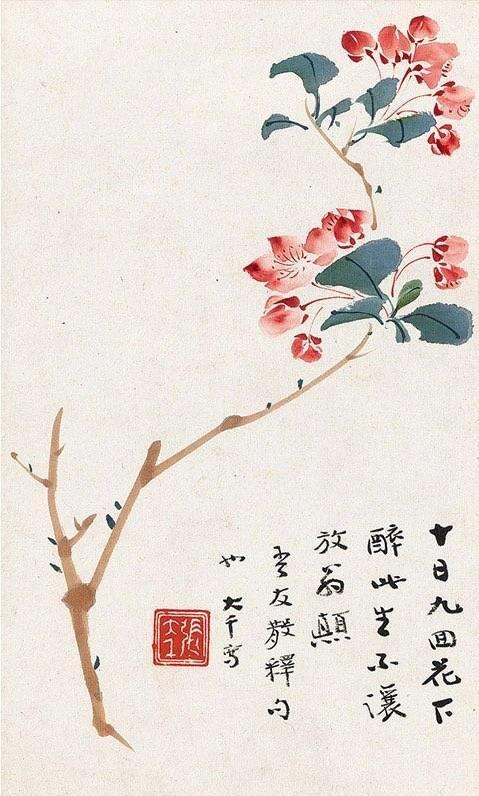 十日九回花下
醉此生不讓
放翁顛
老友散釋句
也 大千寫